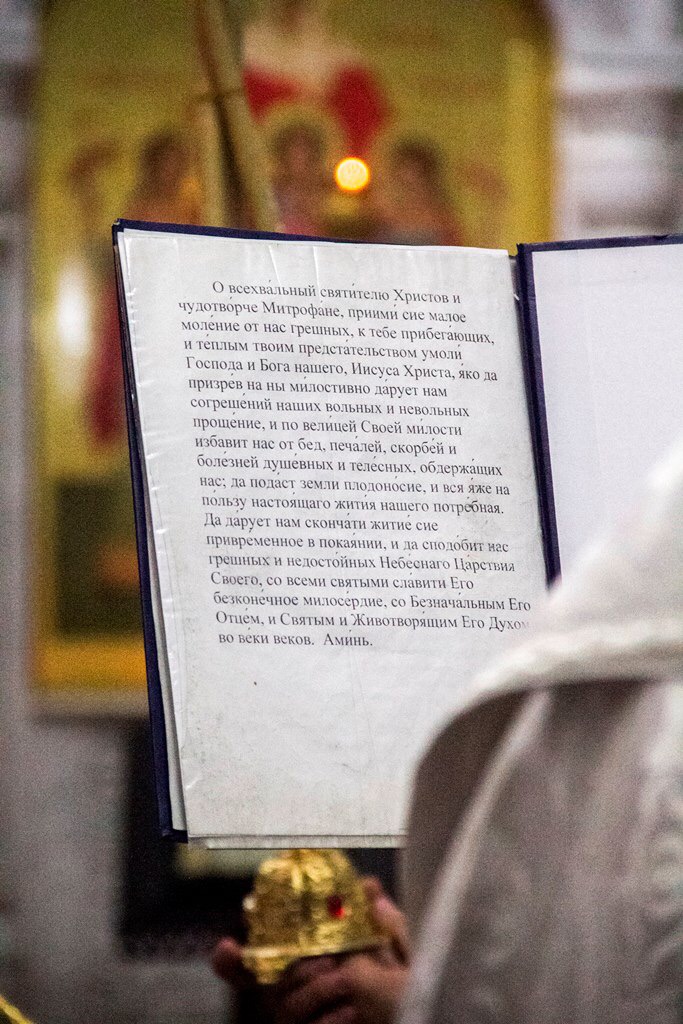 О всехва́льный святи́телю Христов и
чудотво́рче Митрофа́не, приими́ сие малое
моле́ние от нас грешных, к тебе прибега́ющих,
и те́плым твоим предста́тельством умоли́
Господа и Бога нашего, Иисуса Христа, я́ко да
призре́в на ны ми́лостивно да́рует нам
согреше́ний наших вольных и невольных
проще́ние, и по вели́цей Своей ми́лости
изба́вит нас от бед, печа́лей, скорбе́й и
боле́зней душе́вных и теле́сных, обдержа́щих
нас; да пода́ст земли́ плодоно́сие, и вся я́же на
по́льзу настоя́щаго жития́ нашего потре́бная.
Да да́рует нам сконча́ти житие́ сие
привре́менное в покая́нии, и да сподо́бит нас
гре́шных и недосто́йных Небе́снаго Ца́рствия
Своего́, со все́ми святы́ми сла́вити Его
безконе́чное милосе́рдие, со Безнача́льным Его
Отце́м, и Святы́м и Животворя́щим Его Ду́хом
во ве́ки веко́в. Ами́нь.